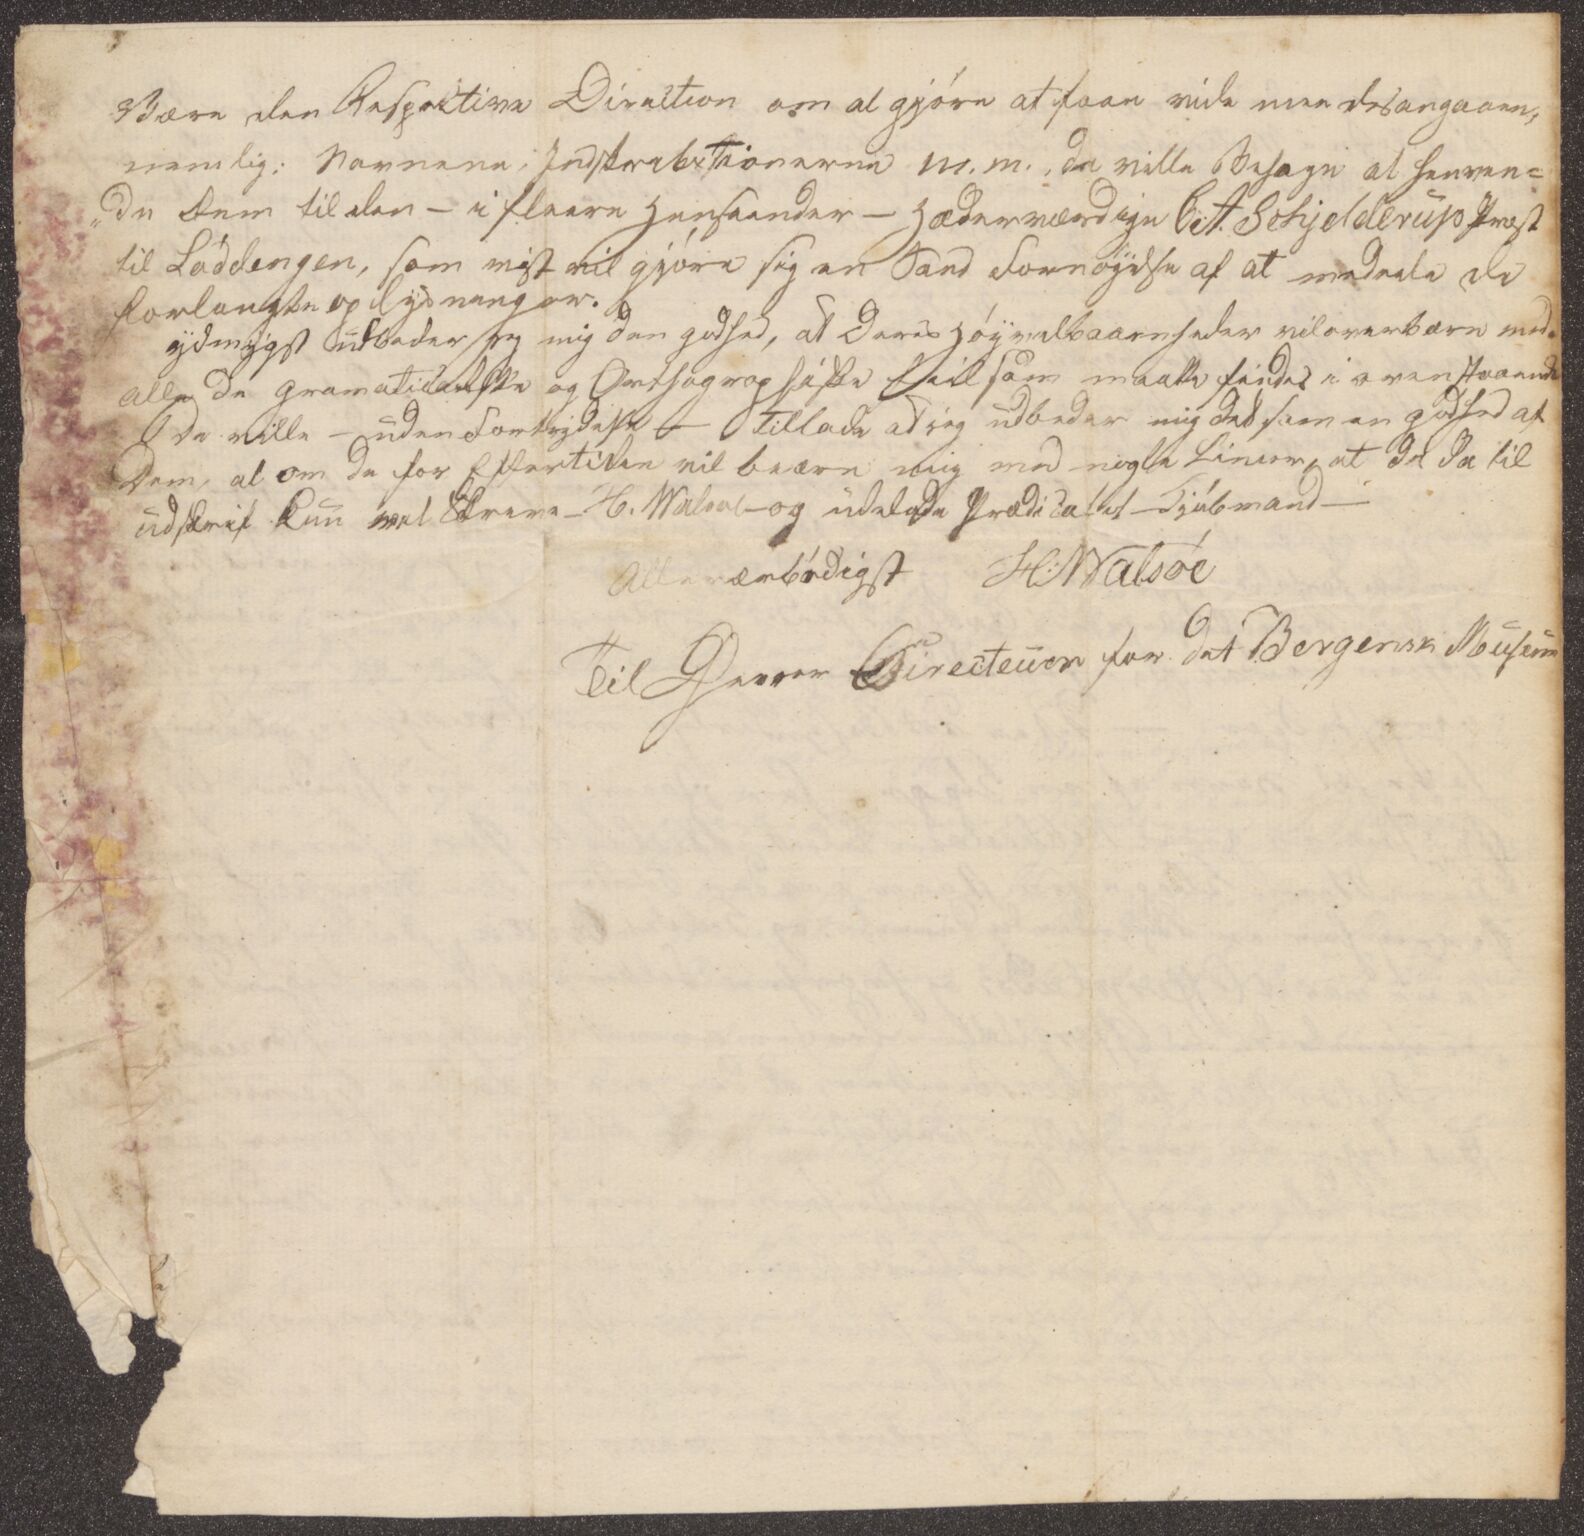 Være den Respective Direction om at gjöre at faae vide mere desangaaen,
nemlig: Navnene, Indskrebtsionerne m.m., De ville Behage at henven=
"de Dem til den – i fleere Henseender – Hæderværdige C. A. Schjelderup Prost
til Löddengen, som vist vil gjöre sig en Sand Fornöyelse af at meddele de
forlangte oplysninger.
ydmygst udbeder jeg mig den godhed, at Deres Höyvelbaarenheder vil overbære med
alle de gramaticalske og Orthographiske feil som maatte findes i ovenstaaende
De ville – uden Fortrydelse – Tillade at jeg udbeder mig det som en godhed af
Dem, at om De for Eftertiden vil beære mig med nogle Linier, at De da til
udskrif kun vel Skreve – H. Walsöe – og udelade Prædicatet – Kjöbmand –
Allerærbödigst H: Walsöe
Til Herrer Directeurer for Det Bergenske Museum